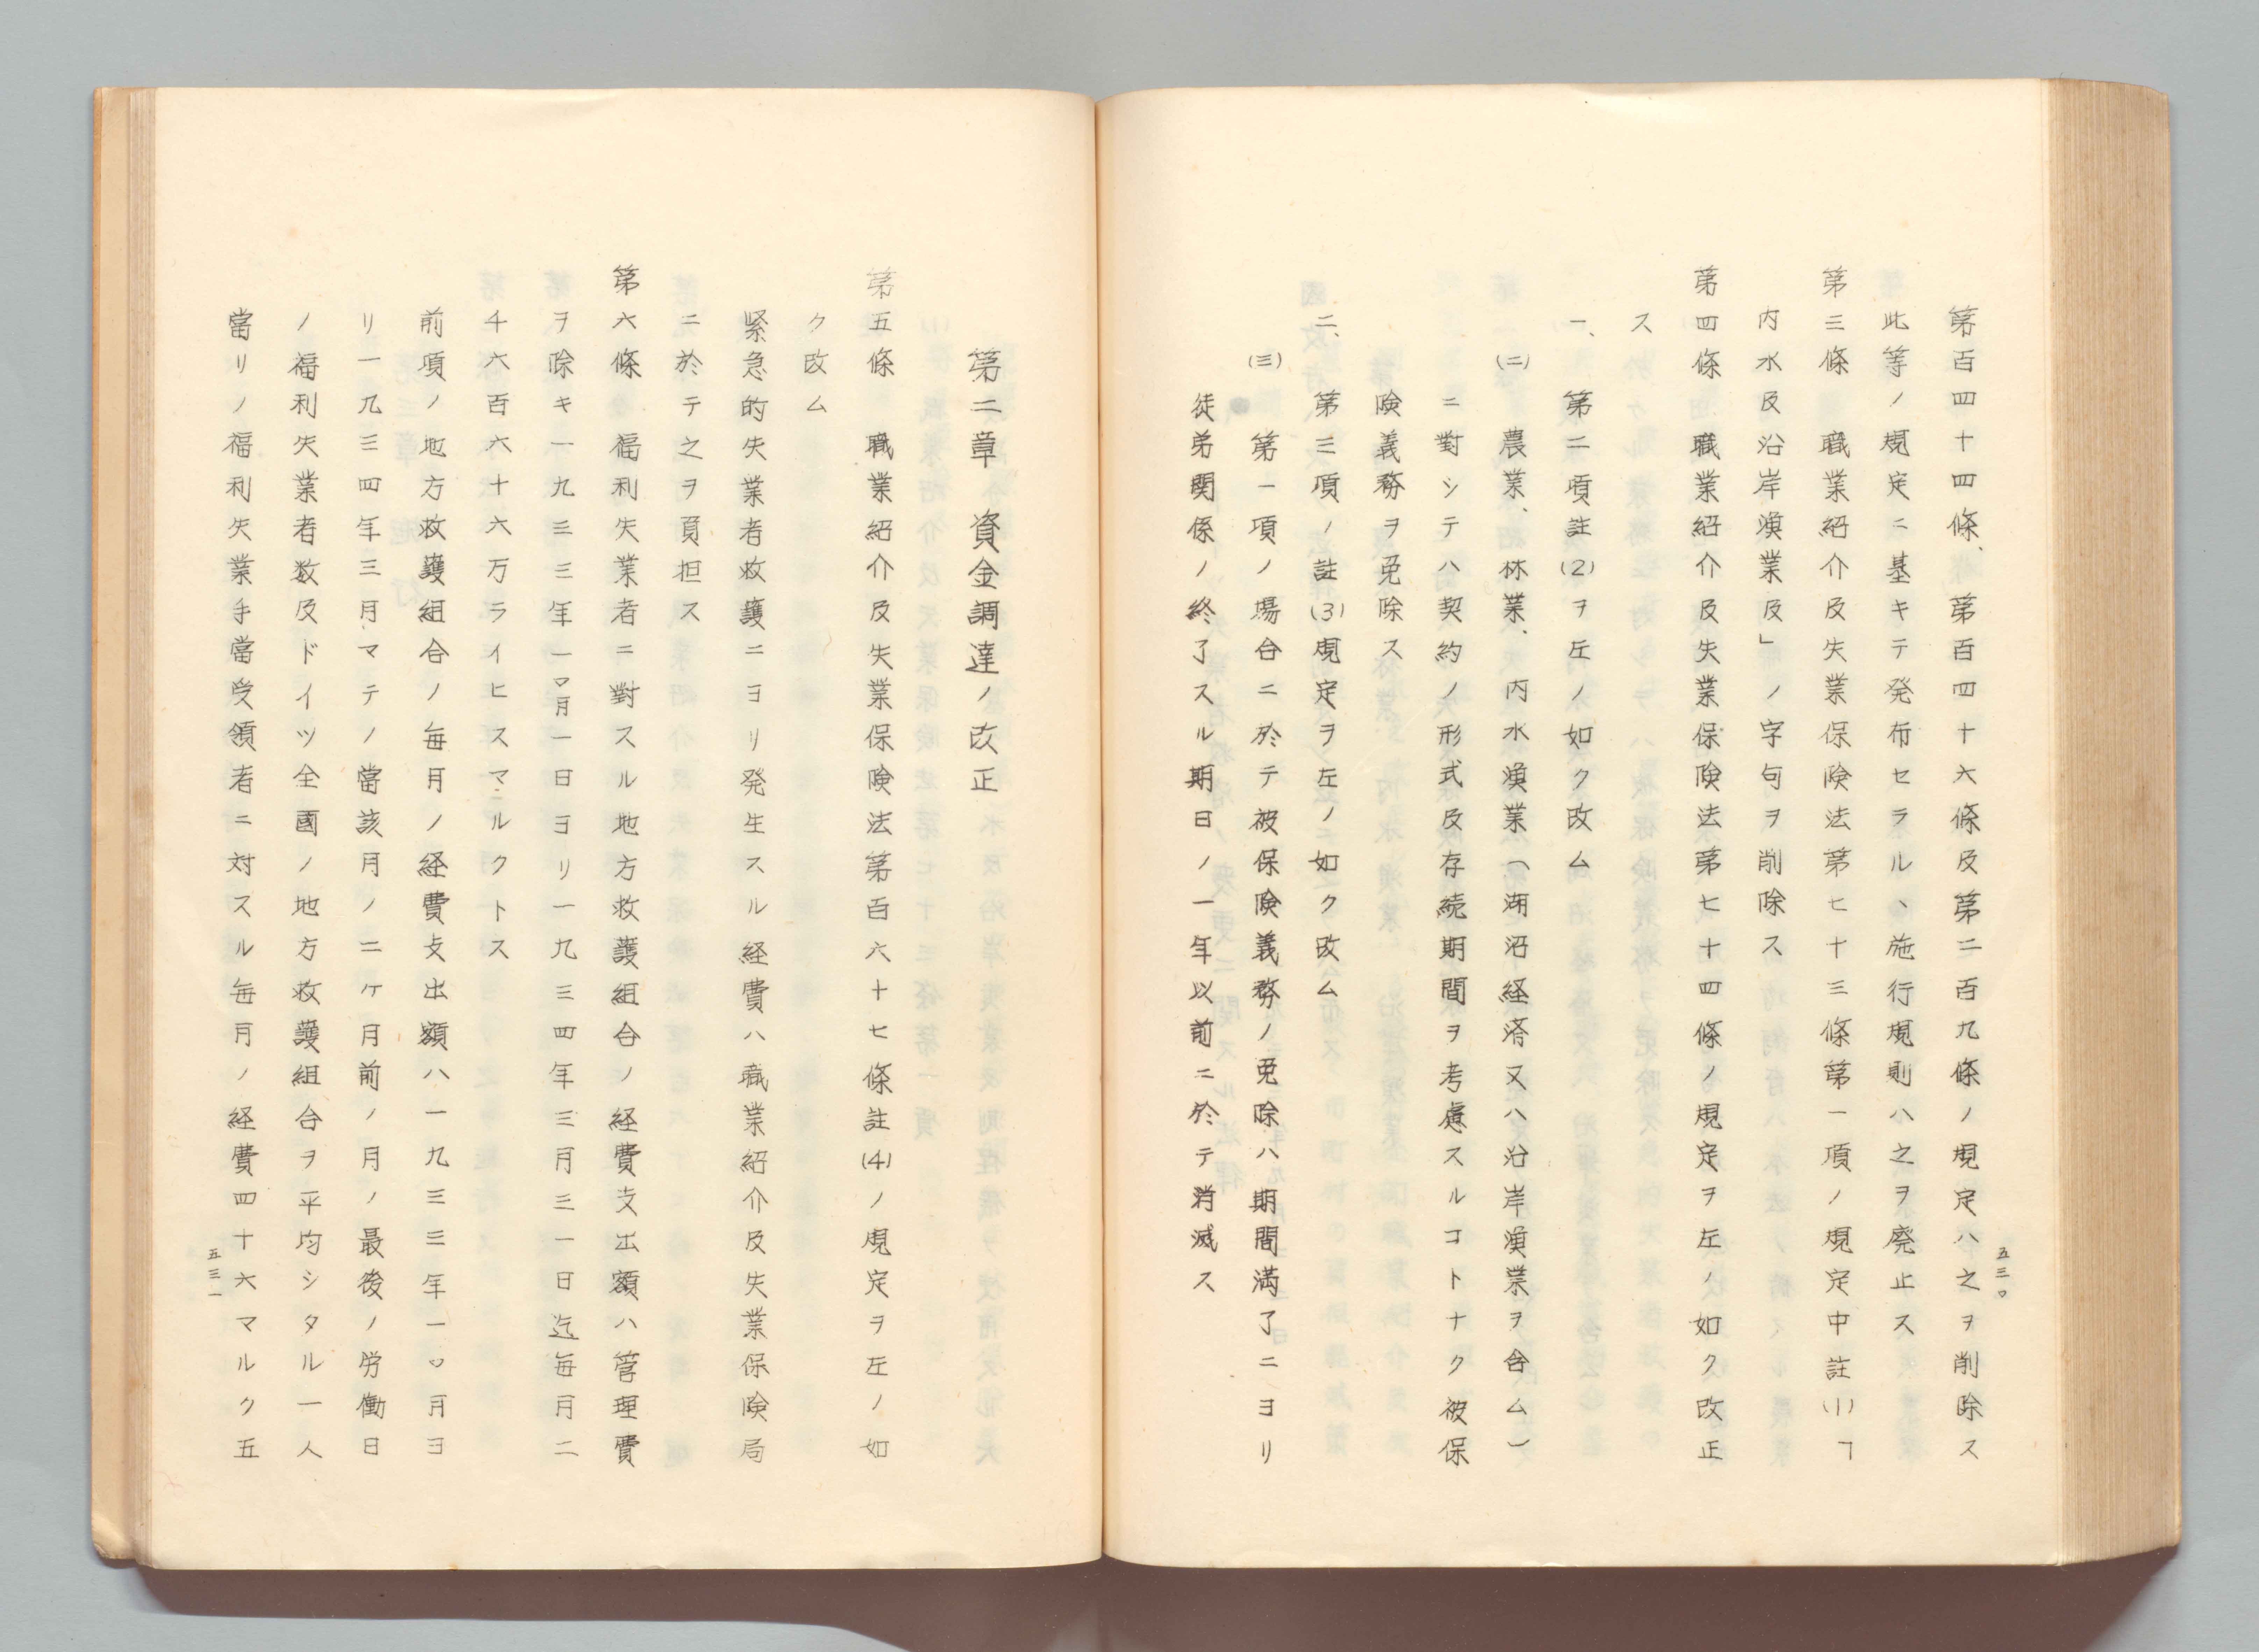 第百四十四條、第百四十六條及第二百九條ノ規定ハ之ヲ削除ス
此等ノ規定ニ基キテ発布セラル丶施行規則ハ之ヲ廃止ス
第三條　職業紹介及失業保険法第七十三條第一項ノ規定中註(1)「
内水及沿岸漁業及」ノ字句ヲ削除ス
第四條　職業紹介及失業保険法第七十四條ノ規定ヲ左ノ如ク改正
ス
一、第二項註(2)ヲ左ノ如ク改ム
(二)　農業、林業、内水漁業（湖沼経済又ハ沿岸漁業ヲ含ム）
ニ對シテハ契約ノ形式及存続期間ヲ考慮スルコトナク被保
険義務ヲ免除ス
二、第三項ノ註(3)規定ヲ左ノ如ク改ム
(三)　第一項ノ場合ニ於テ被保険義務ノ免除ハ期間満了ニヨリ
徒弟関係ノ終了スル期日ノ一年以前ニ於テ消滅ス
五三〇
第二章　資金調達ノ改正
第五條　職業紹介及失業保険法第百六十七條註(4)ノ規定ヲ左ノ如
ク改ム
緊急的失業者救護ニヨリ発生スル経費ハ職業紹介及失業保険局
ニ於テ之ヲ負担ス
第六條　福利失業者ニ對スル地方救護組合ノ経費支出額ハ管理費
ヲ除キ一九三三年一〇月一日ヨリ一九三四年三月三一日迄毎月二
千六百六十六万ライヒスマルクトス
前項ノ地方救護組合ノ毎月ノ経費支出額ハ一九三三年一〇月ヨ
リ一九三四年三月マテノ當該月ノ二ケ月前ノ月ノ最後ノ労働日
ノ福利失業者数及ドイツ全國ノ地方救護組合ヲ平均シタル一人
當リノ福利失業手當受領者ニ対スル毎月ノ経費四十六マルク五
五三一